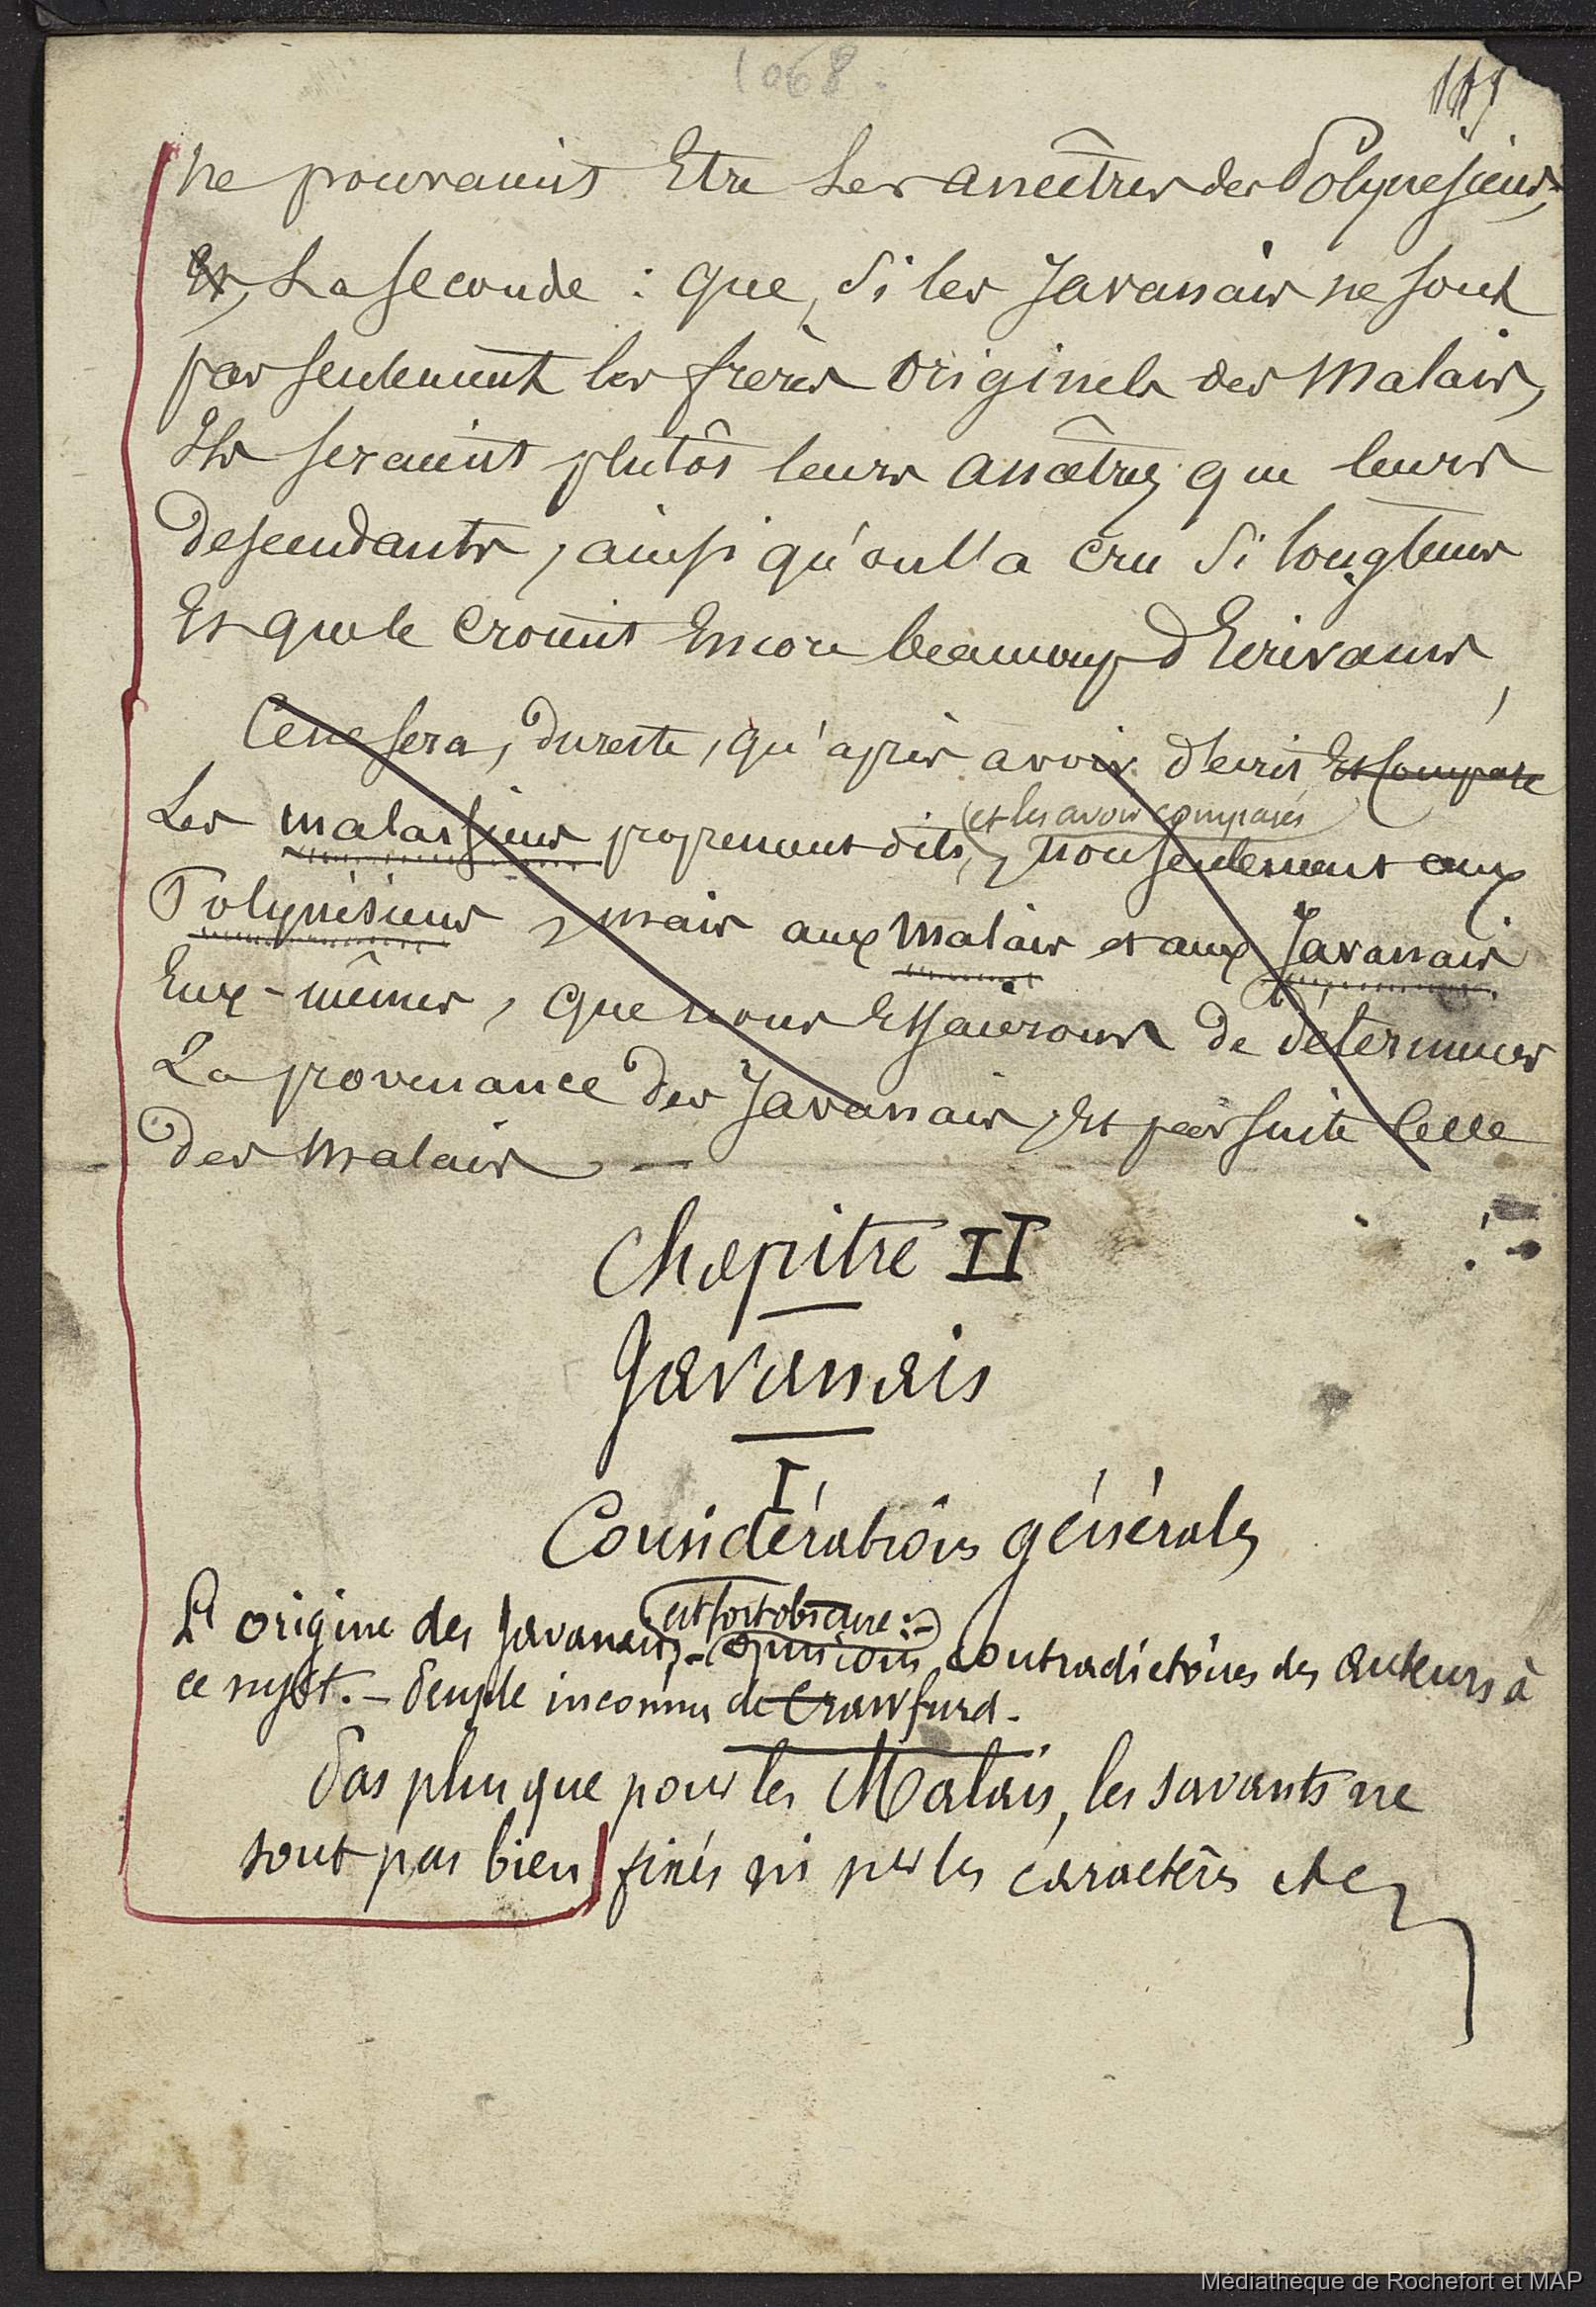 1068.
ne pouvaient Etre Les ancêtres des Polynésiens,
Et, La seconde : que, Si les Javanais ne sont
pas seulement les frères originels des Malais,
Ils seraient plutôt leurs ancêtres que leurs
descendants, ainsi qu'on l'a cru Si longtems
Et que le croient Encore beaucoup d'Ecrivains,
Ce ne sera, du reste, qu'après avoir décrit Et Comparé
(et les avoir comparés
Les malaisiens proprement dits, non seulement aux
Polynésiens, mais aux Malais et aux Javanais
Eux-mêmes, que nous Essaierons de déterminer
La provenance des Javanais, Et par suite Celle
des Malais —
Chapitre II
Javanais
I
Considérations générales
est fort obscure :-)
L'origine des Javanais,- opinions contradictoires des auteurs à
ce sujet. - Peuple inconnu de Crawfurd -
Pas plus que pour les Malais, les savants ne
sont pas bien fixés ni sur les caractères etc
Médiathèque de Rochefort et MAP